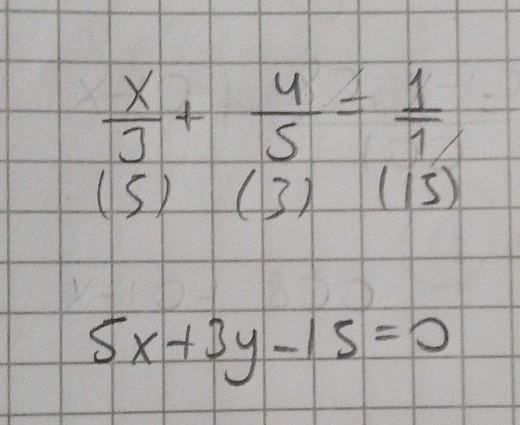 x/3 + y/5 = 1/1
(5) (3) (15)
5x+3y-15=0